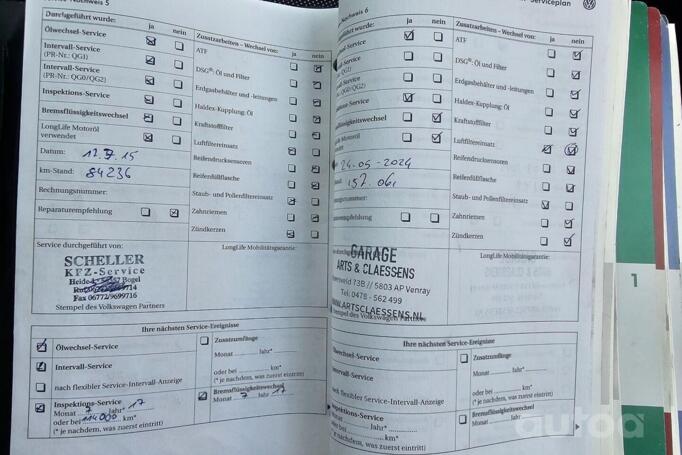 Nachweis 5
Durchgeführt wurde:
ja
nein
Ölwechsel-Service
Intervall-Service
(PR-Nr.: QG1)
Intervall-Service
(PR-Nr.: QG0/QG2)
Inspektions-Service
Bremsflüssigkeitswechsel
LongLife Motoröl
verwendet
Datum:
km-Stand: 84236
Rechnungsnummer:
Reparaturempfehlung
Zusatzarbeiten - Wechsel von:
ja
nein
ATF
DSG®: Öl und Filter
Erdgasbehälter und -leitungen
Haldex-Kupplung: Öl
Kraftstofffilter
Luftfiltereinsatz
Reifendrucksensoren
Reifenfüllflasche
Staub- und Pollenfiltereinsatz
Zahnriemen
Zündkerzen
Service durchgeführt von:
LongLife Mobilitätsgarantie:
SCHELLER
KFZ-Service
Bogel
Fax 06772/9699716
Stempel des Volkswagen Partners
Ihre nächsten Service-Ereignisse
Ölwechsel-Service
Intervall-Service
nach flexibler Service-Intervall-Anzeige
Inspektions-Service
Monat 7 Jahr* 17
oder bei 114000 km*
(* je nachdem, was zuerst eintritt)
Zusatzumfänge
Monat Jahr*
oder bei km*
(* je nachdem, was zuerst eintritt)
Bremsflüssigkeitswechsel
Monat 7 Jahr 17
Nachweis 6
Serviceplan
führt wurde:
ja
nein
sel-Service
Service
Service
QG0/QG2)
Service
flüssigkeitswechsel
Motoröl
24-05-2024
157.061
Zusatzarbeiten - Wechsel von:
ja
nein
ATF
DSG®: Öl und Filter
Erdgasbehälter und -leitungen
Haldex-Kupplung: Öl
Kraftstofffilter
Luftfiltereinsatz
Reifendrucksensoren
Reifenfüllflasche
Staub- und Pollenfiltereinsatz
Zahnriemen
Zündkerzen
LongLife Mobilitätsgarantie:
GARAGE
ARTS & CLAESSENS
73B // 5803 AP Venray
Tel: 0478 - 562499
WWW.ARTSCLAESSENS.NL
Stempel des Volkswagen Partners
Ihre nächsten Service-Ereignisse
Ölwechsel-Service
Intervall-Service
nach flexibler Service-Intervall-Anzeige
Inspektions-Service
Monat Jahr*
oder bei km*
(* je nachdem, was zuerst eintritt)
Zusatzumfänge
Monat Jahr*
oder bei km*
(* je nachdem, was zuerst eintritt)
Bremsflüssigkeitswechsel
Monat Jahr
1
autoa